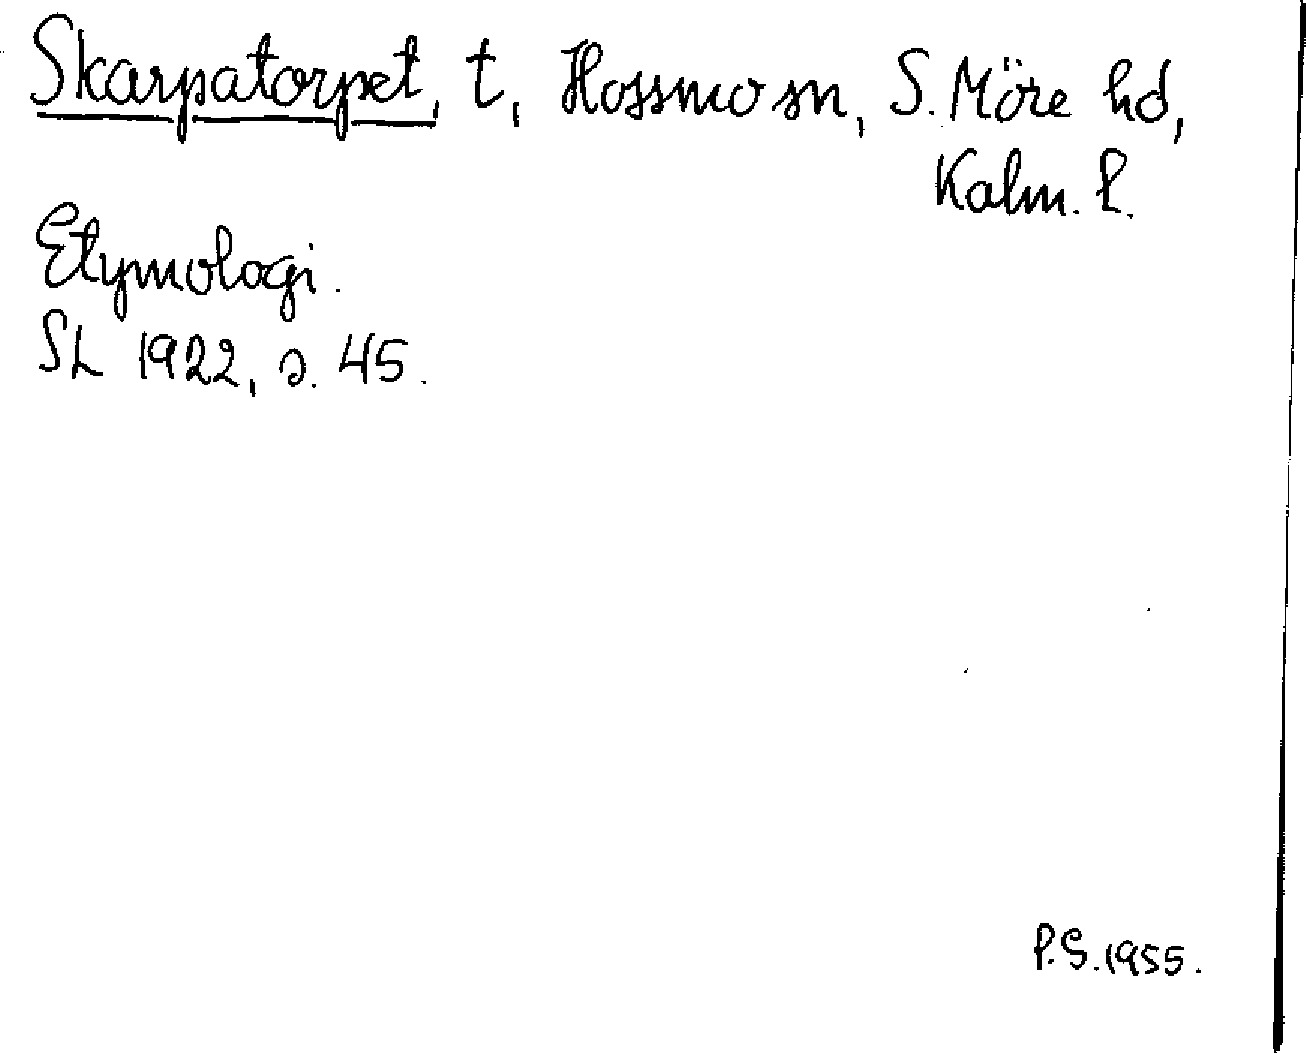 Skarpatorpet, t, Hossmo sn, S. Möre hd,
Kalm. l.
Etymologi.
SL 1922, s. 45.
P.S. 1955.